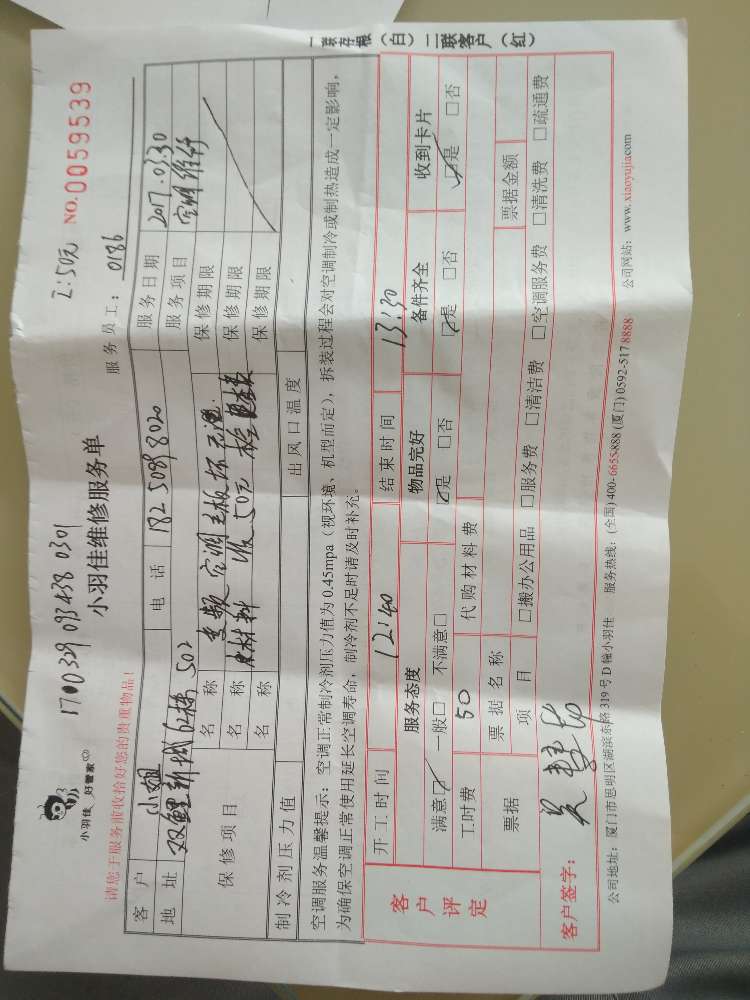 一联存根（白）二联客户（红）
1700329 093438 0301
I:50元 NO.0059539
小羽佳 好管家
小羽佳维修服务单
服务员工：0186
请您于服务前收拾好您的贵重物品！
客户 小姐 电话 182 5089 8020 服务日期 2017.03.30
地址 双鲤新城 502 服务项目 空调维修
保修项目 名称 变频空调主板坏 保修期限
名称 材料 收50元 保修期限
名称 保修期限
制冷剂压力值 出风口温度
空调服务温馨提示：空调正常制冷剂压力值为 0.45mpa（视环境、机型而定），拆装过程会对空调制冷或制热造成一定影响，
为确保空调正常使用延长空调寿命，制冷剂不足时请及时补充。
客户评定
开工时间 12:40 结束时间 13:30
服务态度 物品完好 备件齐全 收到卡片
满意☑ 一般□ 不满意□ ☑是 □否 ☑是 □否 ☑是 □否
工时费 50 代购材料费
票据 票据名称 票据金额
项目 □搬办公用品 □服务费 □清洁费 □空调服务费 □清洗费 □疏通费
客户签字：
公司地址：厦门市思明区湖滨东路 319 号 D 幢小羽佳 服务热线：(全国) 400-6655-888 (厦门) 0592-517 8888 公司网站：www.xiaoyujia.com